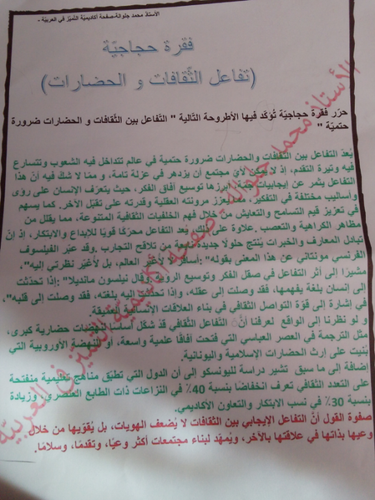 الأستاذ محمد جلولة-صفحة أكاديمية التميّز في العربيّة -
فقرة حجاجيّة
(تفاعل الثّقافات و الحضارات)
حرّر فقرة حجاجيّة تُؤكّد فيها الأطروحة التّالية " التّفاعل بين الثّقافات و الحضارات ضرورة
حتميّة "
يُعدّ التفاعل بين الثقافات والحضارات ضرورة حتمية في عالم تتداخل فيه الشعوب وتتسارع
فيه وتيرة التقدم، إذ لا يمكن لأي مجتمع أن يزدهر في عزلة تامة، وممّا لا شك فيه أنّ هذا
التفاعل يثمر عن إيجابيات أبرزها توسيع آفاق الفكر، حيث يتعرف الإنسان على رؤى
وأساليب مختلفة في التفكير، يعزز مرونته العقلية وقدرته على تقبّل الآخر. كما يسهم
في تعزيز قيم التسامح والتعايش من خلال فهم الخلفيات الثقافية المتنوعة، مما يقلل من
مظاهر الكراهية والتعصب. علاوة على يعدّ التفاعل محرّكًا قويًا للإبداع والابتكار، إذ أنّ
تبادل المعارف والخبرات يُنتج حلولًا جديدة من تلاقح التجارب. وقد عبر الفيلسوف
الفرنسي مونتاني عن هذا المعنى بقوله: لأغير العالم، بل لأغيّر نظرتي إليه".
مشيرًا إلى أثر التفاعل في صقل الفكر وتوسيع الرؤية. قال نيلسون مانديلا: "إذا تحدثت
إلى إنسان بلغة يفهمها، فقد وصلت إلى عقله، وإذا تحدثت إليه بلغته، فقد وصلت إلى قلبه".
في إشارة إلى قوّة التواصل الثقافي في بناء العلاقات الإنسانية العميقة.
و لو نظرنا إلى الواقع لعرفنا أنّ التفاعل الثقافي قد شكّل أساسًا حضارية كبرى،
مثل الترجمة في العصر العباسي التي فتحت آفاقًا علمية واسعة، أو النهضة الأوروبية التي
بُنيت على إرث الحضارات الإسلامية واليونانية.
إضافة إلى ما سبق تشير دراسة لليونسكو إلى أن الدول التي تطبّق مناهج تعليمية منفتحة
على التعدد الثقافي تعرف انخفاضًا بنسبة 40٪ في النزاعات ذات الطابع العنصري، وزيادة
بنسبة 30٪ في نسب الابتكار والتعاون الأكاديمي.
صفوة القول أنّ التفاعل الإيجابي بين الثقافات لا يُضعف الهويات، بل يُقوّيها من خلال
وعيها بذاتها في علاقتها بالآخر، ويُمهّد لبناء مجتمعات أكثر وعيًا، وتقدمًا، وسلامًا.